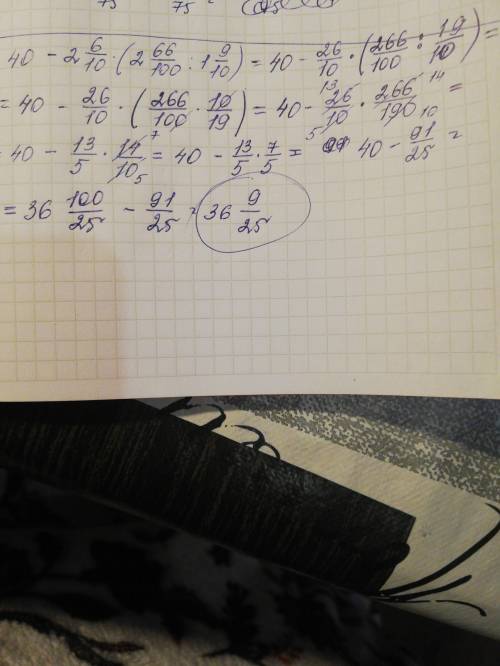 75 75
40 - 2 6/10 · (2 66/100 : 1 9/10) = 40 - 26/10 · (266/100 : 19/10) =
= 40 - 26/10 · (266/100 · 10/19) = 40 - 13 26/10 5 · 266/190 14 10 =
40 - 13/5 · 14/10 7 5 = 40 - 13/5 · 7/5 = 40 - 91/25 =
= 36 100/25 - 91/25 = 36 9/25